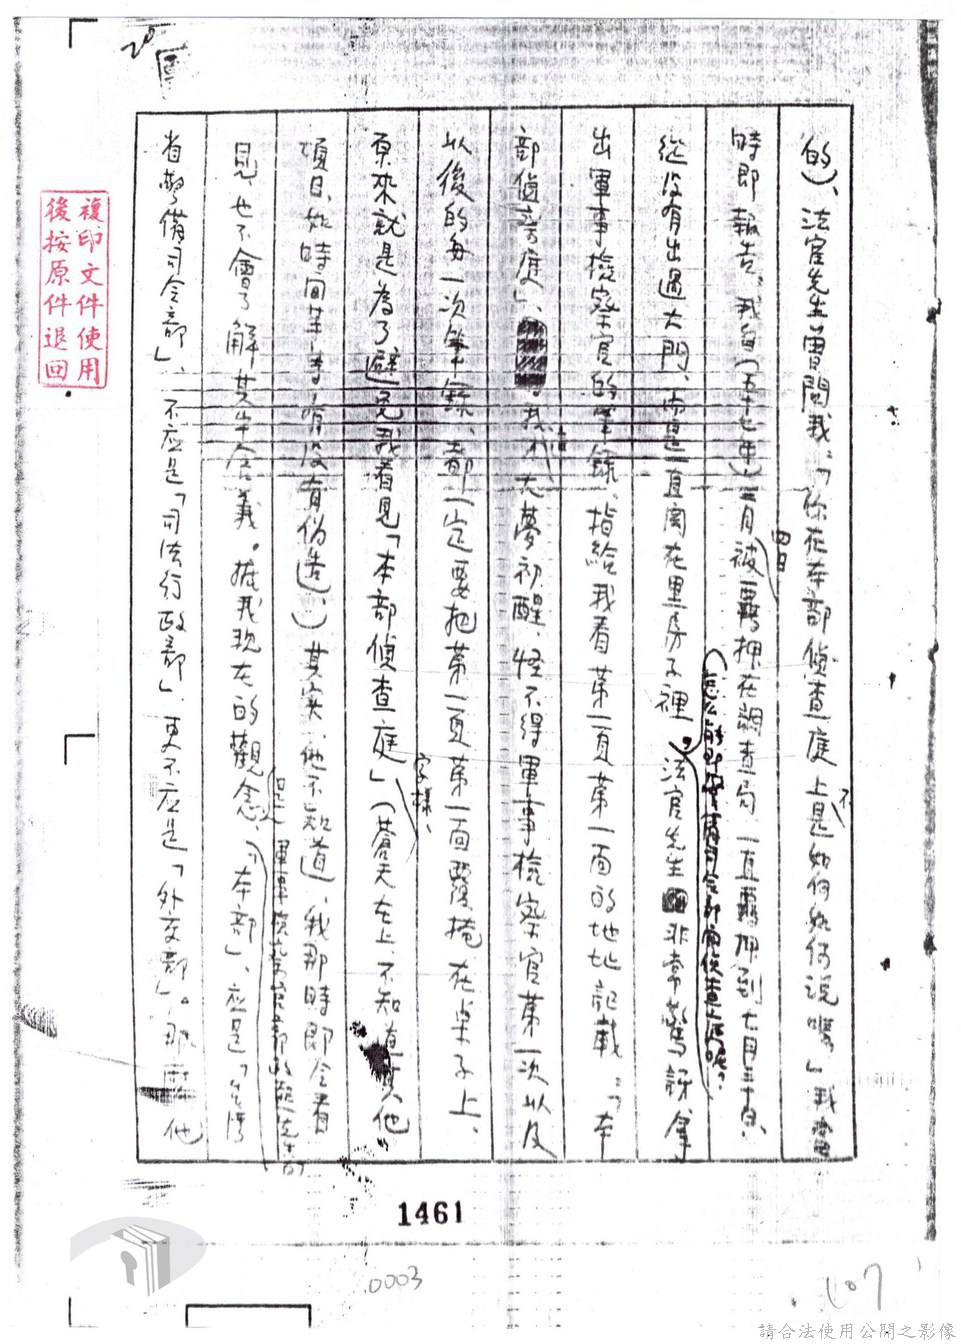 的)、法官先生曾問我:「你在本部偵查庭上是不如何如何說嗎」我當
時即報告、我自(五十七年)三月四日被羈押在調查局一直羈押到七月三十日、
從沒有出過大門、而是一直關在黑房子裡。(怎么能到警備司令部開偵查庭呢?)法官先生非常驚訝、拿
出軍事檢察官的筆錄。指給我看第一頁第一面的地地記載:「本
部偵查庭」、。我才大夢初醒、怪不得軍事檢察官第一次以及
以後的每一次筆錄、都一定要把第一頁第一面覆掩在桌子上、
原來就是為了避免我看見「本部偵查庭」字樣、(蒼天在上、不知道其他
項目、如時間等等有沒有偽造、)其實、他不知道、我那時即令看
見、也不會了解其中含義。據我現在的觀念、但是軍事檢察官
「本部」、應是「台灣
省警備司令部」、不應是「司法行政部」、更不應是「外交部」。那
他
複印文件使用
後按原件退回
1461
0003
107
請合法使用公開之影像